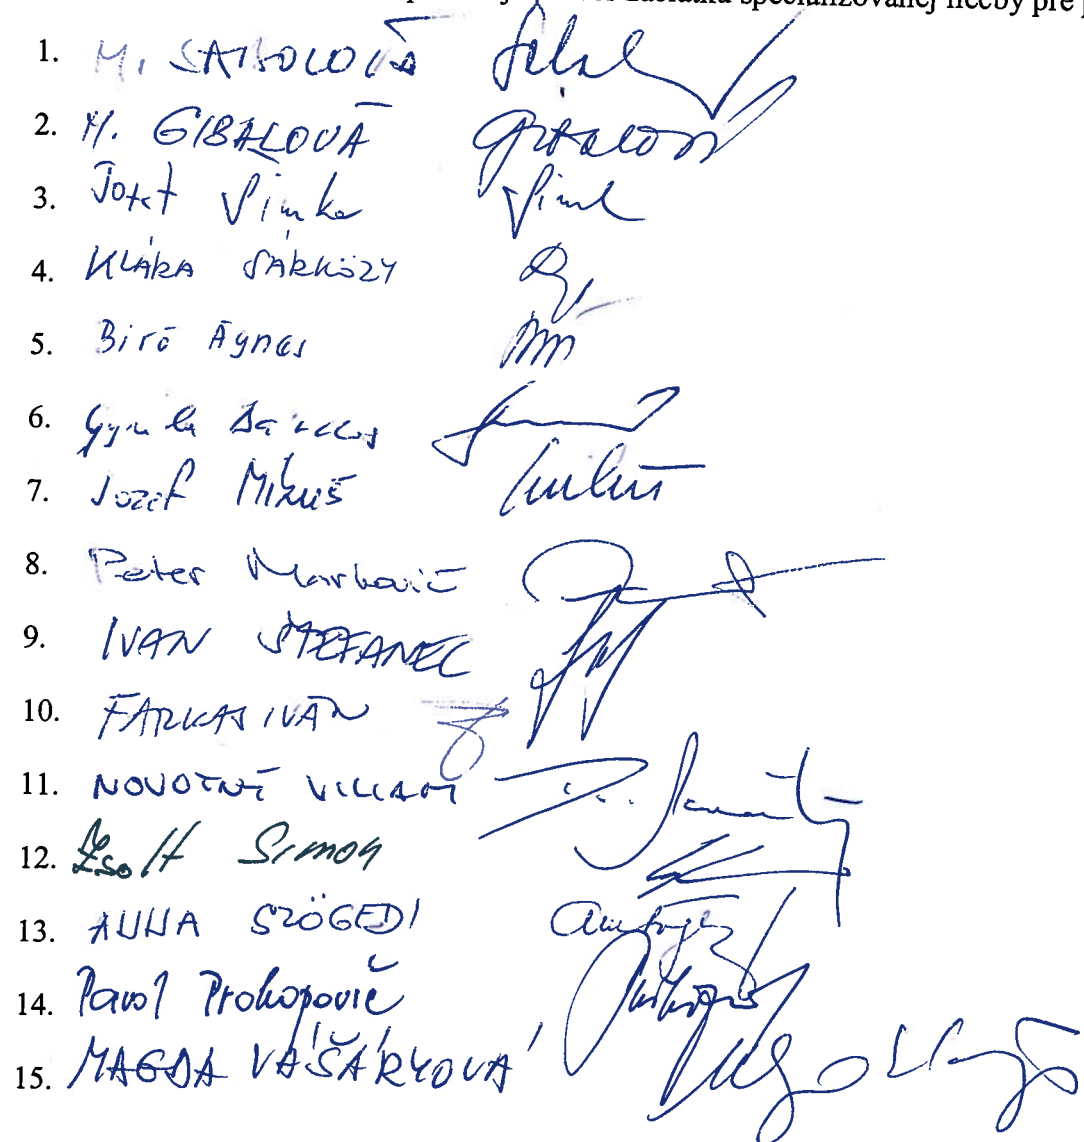 špecializovanej liečby pre
1. M. SABOLOVÁ
2. M. GIBALOVÁ
3. Jozef Šimko
4. KLÁRA SÁRKÖZY
5. Biró Ágnes
6. Gyula Bárdos
7. Jozef Mikuš
8. Peter Markovič
9. IVAN ŠTEFANEC
10. FARKAS IVÁN
11. NOVOTNÝ VILIAM
12. Zsolt Simon
13. ANNA SZÖGEDI
14. Pavol Prokopovič
15. MAGDA VÁŠÁRYOVÁ